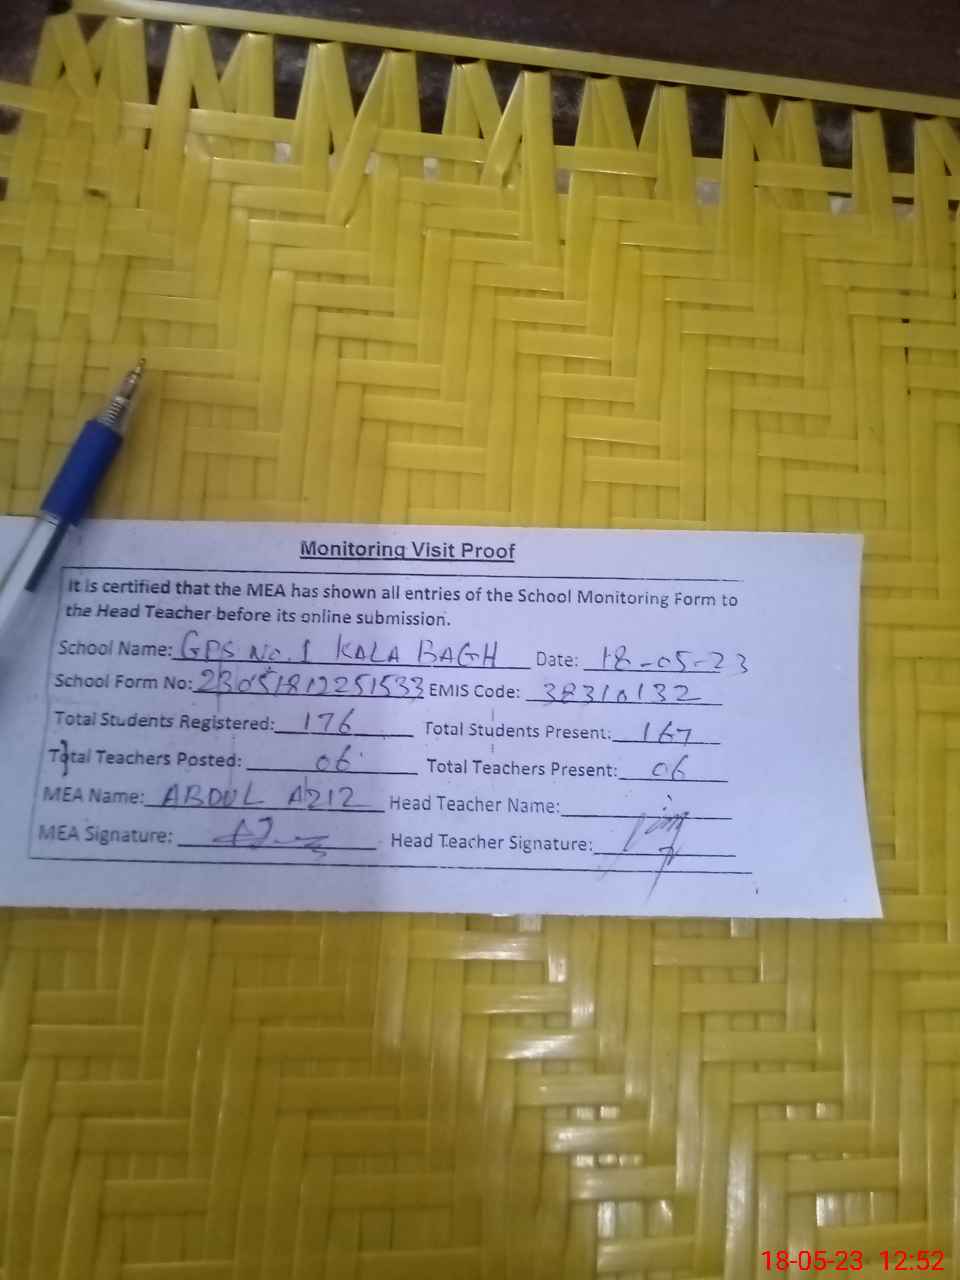 Monitoring Visit Proof
It is certified that the MEA has shown all entries of the School Monitoring Form to
the Head Teacher before its online submission.
School Name: GPS No. 1 KALA BAGH Date: 18-05-23
School Form No: 23051812251533 EMIS Code: 38310132
Total Students Registered: 176 Total Students Present: 167
Total Teachers Posted: 06 Total Teachers Present: 06
MEA Name: ABDUL AZIZ Head Teacher Name:
MEA Signature: Head Teacher Signature:
18-05-23 12:52